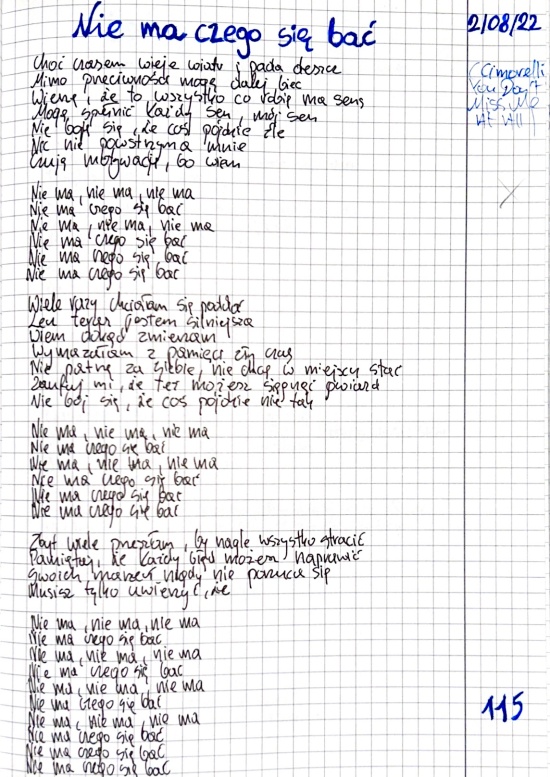 Nie ma czego się bać
2/08/22
(Cimorelli
You Don't
Miss Me
At All
Choć czasem wieje wiatr i pada deszcz
Mimo przeciwności mogę dalej biec
Wierzę, że to wszystko co robię ma sens
Mogę spełnić każdy sen, mój sen
Nie boję się, że coś pójdzie źle
Nic nie powstrzyma mnie
Czuję motywację, bo wiem
Nie ma, nie ma, nie ma
Nie ma czego się bać
Nie ma, nie ma, nie ma
Nie ma czego się bać
Nie ma czego się bać
Nie ma czego się bać
Wiele razy chciałam się poddać
Lecz teraz jestem silniejsza
Wiem dokąd zmierzam
Wymazałam z pamięci zły czas
Nie patrzę za siebie, nie chcę w miejscu stać
Zaufaj mi, że też możesz sięgnąć gwiazd
Nie bój się, że coś pójdzie nie tak
Nie ma, nie ma, nie ma
Nie ma czego się bać
Nie ma, nie ma, nie ma
Nie ma czego się bać
Nie ma czego się bać
Nie ma czego się bać
Zbyt wiele przeszłam, by nagle wszystko stracić
Pamiętaj, że każdy błąd możem naprawić
Swoich marzeń nigdy nie porzuca się
Musisz tylko uwierzyć, że
Nie ma, nie ma, nie ma
Nie ma czego się bać
Nie ma, nie ma, nie ma
Nie ma czego się bać
Nie ma, nie ma, nie ma
Nie ma czego się bać
Nie ma, nie ma, nie ma
Nie ma czego się bać
Nie ma czego się bać
Nie ma czego się bać
115